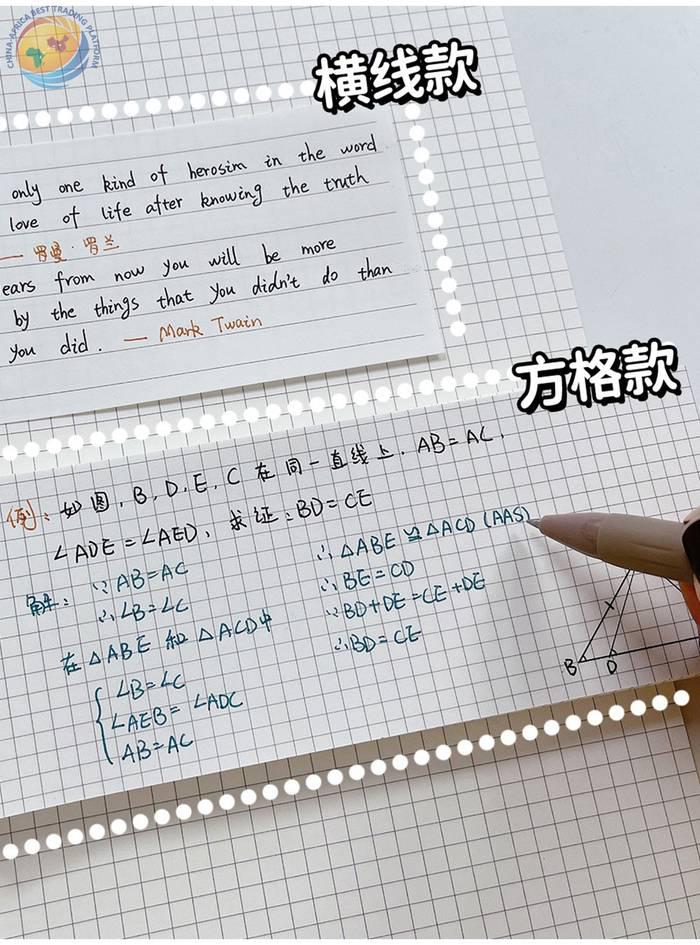 CHINA-AFRICA BEST TRADING PLATFORM
横线款
only one kind of herosim in the word
love of life after knowing the truth
— 罗曼·罗兰
ears from now you will be more
by the things that you didn't do than
you did. — Mark Twain
方格款
例:如图,B,D,E,C在同一直线上,AB=AC,
∠ADE=∠AED,求证:BD=CE
解:∵AB=AC
∴∠B=∠C
在△ABE和△ACD中
∠B=∠C
∠AEB=∠ADC
AB=AC
∴△ABE≌△ACD(AAS)
∴BE=CD
∵BD+DE=CE+DE
∴BD=CE
B D